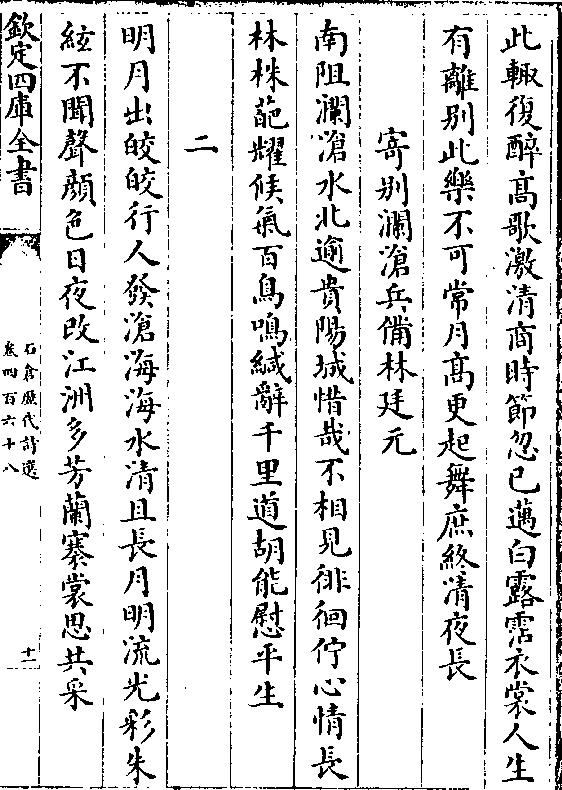 此輙復醉高歌激清商時節忽已邁白露霑衣裳人生
有離别此樂不可常月高更起舞庶終清夜長
寄别瀾滄兵備林廷元
南阻瀾滄水北逾貴陽城惜哉不相見徘徊佇心情長
林株葩耀候氣百鳥鳴緘辭千里道胡能慰平生
二
明月出皎皎行人發滄海海水清且長月明流光彩朱
絃不聞聲顔色日夜改江洲多芳蘭搴裳思共采
欽定四庫全書
石倉歷代詩選
卷四百六十八
十一